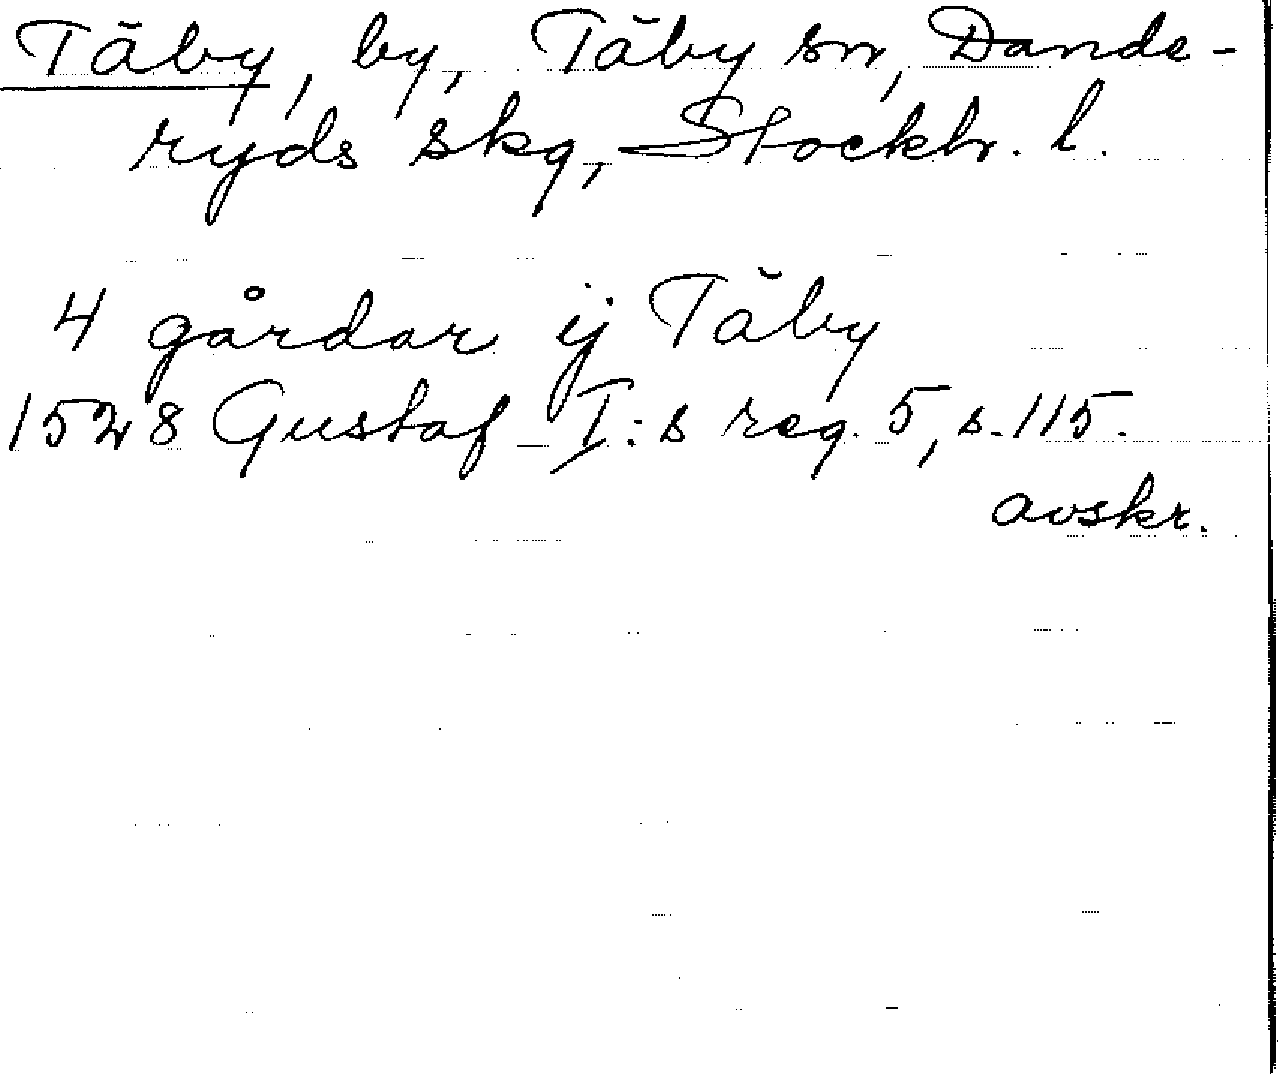 Täby, by, Täby sn, Dande-
ryds skg, Stockh. l.
4 gårdar ij Täby
1528 Gustaf I:s reg. 5, s. 115.
avskr.